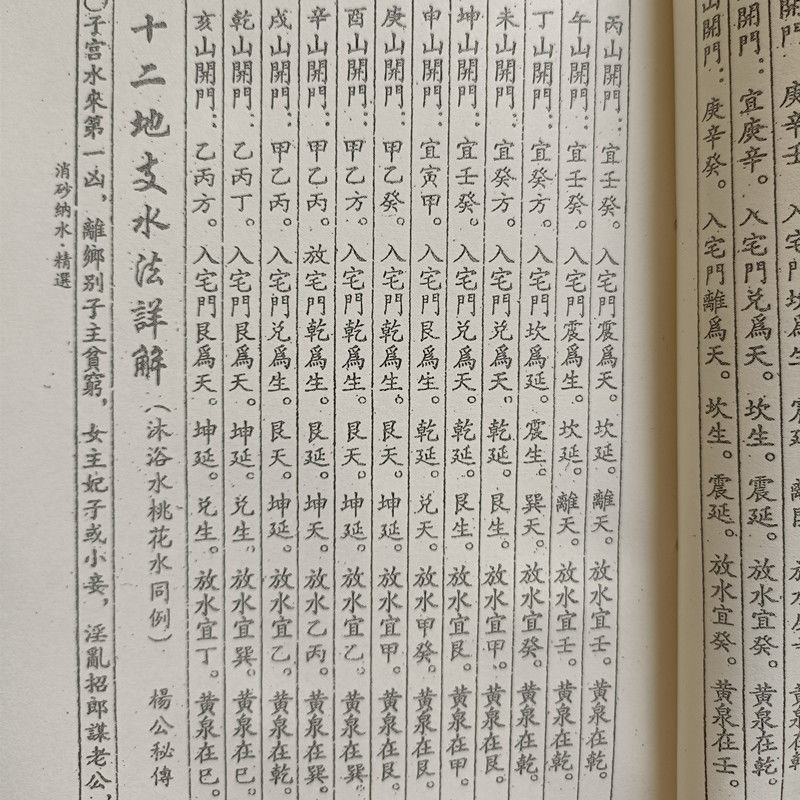 庚辛壬
開門：宜庚辛。入宅門兑爲天。坎生。震延。放水宜癸。黄泉在乾。
山開門：庚辛癸。入宅門離爲天。坎生。震延。放水宜癸。黄泉在壬。
丙山開門：宜壬癸。入宅門震爲天。坎延。離天。放水宜壬。黄泉在乾。
午山開門：宜壬癸。入宅門震爲生。坎延。離天。放水宜壬。黄泉在乾。
丁山開門：宜癸方。入宅門坎爲延。震生。巽天。放水宜癸。黄泉在乾。
未山開門：宜癸方。入宅門兑爲天。乾延。艮生。放水宜甲。黄泉在艮。
坤山開門：宜壬癸。入宅門兑爲天。乾延。艮生。放水宜艮。黄泉在甲。
申山開門：宜寅甲。入宅門艮爲生。乾延。兑天。放水甲癸。黄泉在艮。
庚山開門：甲乙癸。入宅門乾爲生。艮天。坤延。放水宜甲。黄泉在艮。
酉山開門：甲乙方。入宅門乾爲生。艮天。坤延。放水宜乙。黄泉在巽。
辛山開門：甲乙丙。放宅門乾爲生。艮延。坤天。放水乙丙。黄泉在巽。
戌山開門：甲乙丙。入宅門兑爲生。艮天。坤延。放水宜乙。黄泉在乾。
乾山開門：乙丙丁。入宅門艮爲天。坤延。兑生。放水宜巽。黄泉在巳。
亥山開門：乙丙方。入宅門艮爲天。坤延。兑生。放水宜丁。黄泉在巳。
十二地支水法詳解（沐浴水桃花水同例） 楊公秘傳
子宫水來第一凶，離鄉别子主貧窮，女主妃子或小妾，淫亂招郎謀老公，
消砂納水·精選